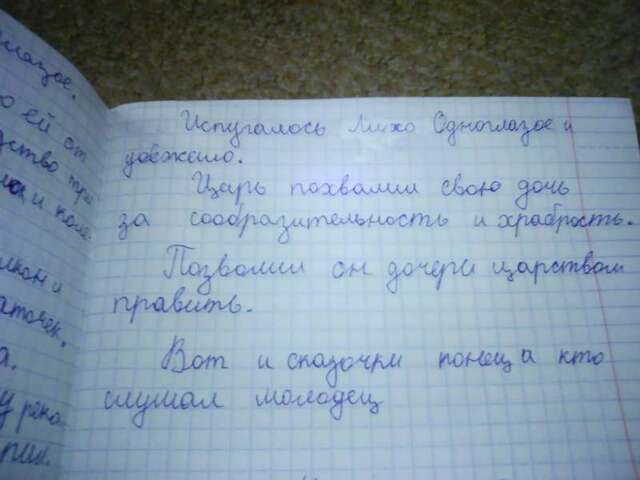 лазое.
о ей от
дство
и
аточек.
а.
Испугалось Лихо Одноглазое и
убежало.
Царь похвалил свою дочь
за сообразительность и храбрость.
Позволил он дочери царством
править.
Вот и сказочки конец а кто
слушал молодец